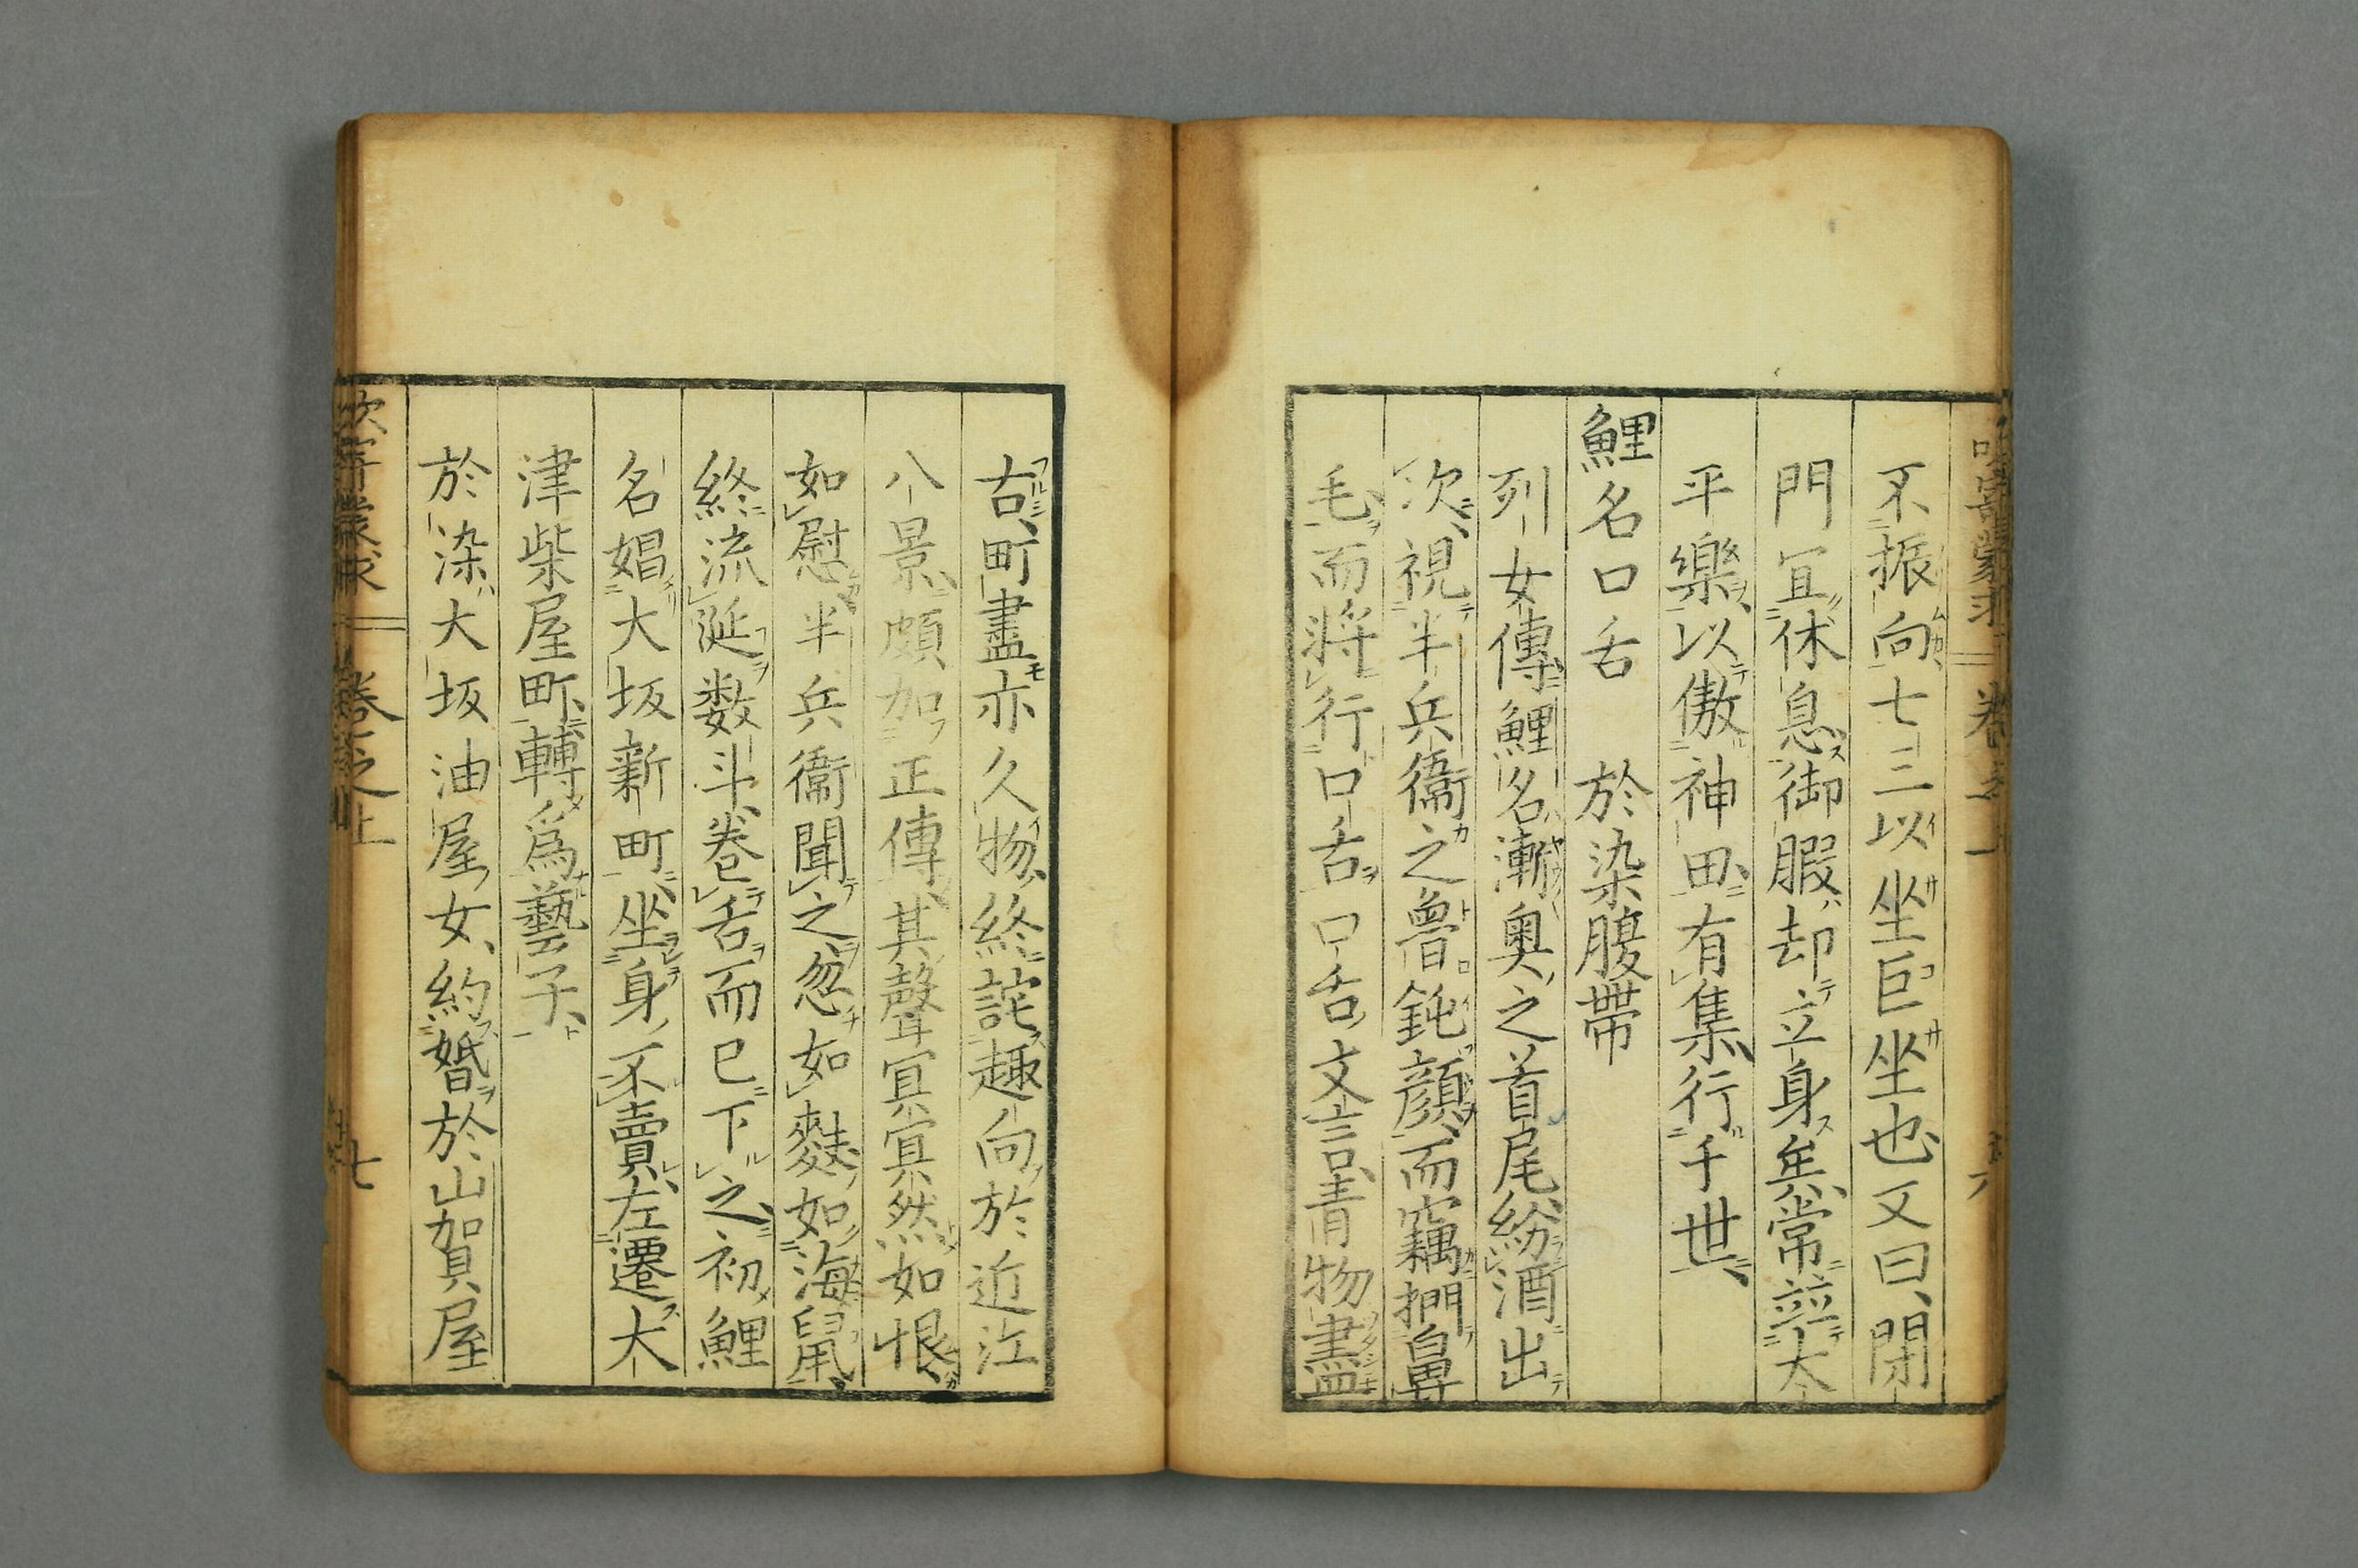 不振向七三以坐巨坐也又曰閉
門冝休息御服却立身矣常並大
平樂以傲神田有集行千世
鯉名口舌　於染腹帶
列女傳鯉名漸奥之首尾紛酒出
次視半兵衞之魯鈍顔而竊捫鼻
毛而將行口舌口舌文言青物盡
古町盡亦久物終詫趣向於近江
八景頗加正傳其聲冥冥然如恨
如慰半兵衞聞之忽如麩如海鼠
終流涎数斗卷舌而已下之初鯉
名娼大坂新町坐身不賣左遷大
津柴屋町轉爲藝子
於染大坂油屋女約婚於山賀屋
卷之上
七